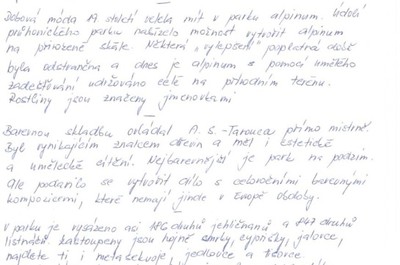 Dobová móda 19. století velela mít v parku alpinum. Údolí
průhonického parku nabízelo možnost vytvořit alpinum
na přirozené skále. Některá „vylepšení" poplatná době
byla odstraněna a dnes je alpinum s pomocí umělého
zadešťování udržováno celé na původním terénu.
Rostliny jsou značeny jmenovkami
Barevnou skladbu ovládal A. S. -Tarouca přímo mistrně.
Byl vynikajícím znalcem dřevin a měl i estetické
a umělecké cítění. Nejbarevnější je park na podzim.
Ale podařilo se vytvořit dílo s celoročními barevnými
kompozicemi, které nemají jinde v Evropě obdoby.
V parku je vysázeno asi druhů jehličnanů a druhů
listnáčů. zastoupeny jsou hojně smrky, cypřišky, jalovce,
najdete tu i metasekvoje, jedlovce a